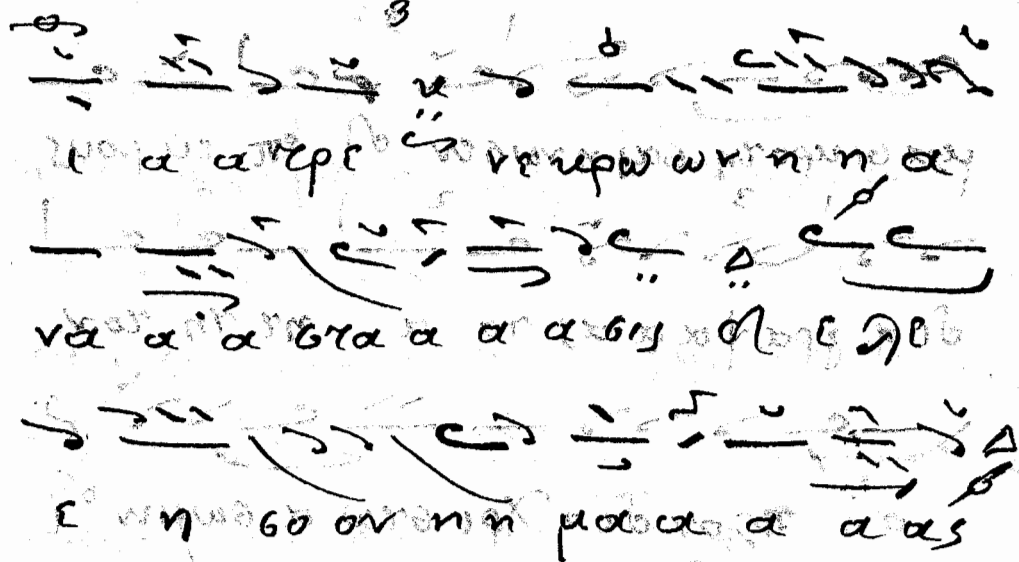 3
ι α α τρε νε κρω ων η η α
να α α στα α α α σις ε λε
ε η σο ον η η μα α α α ας